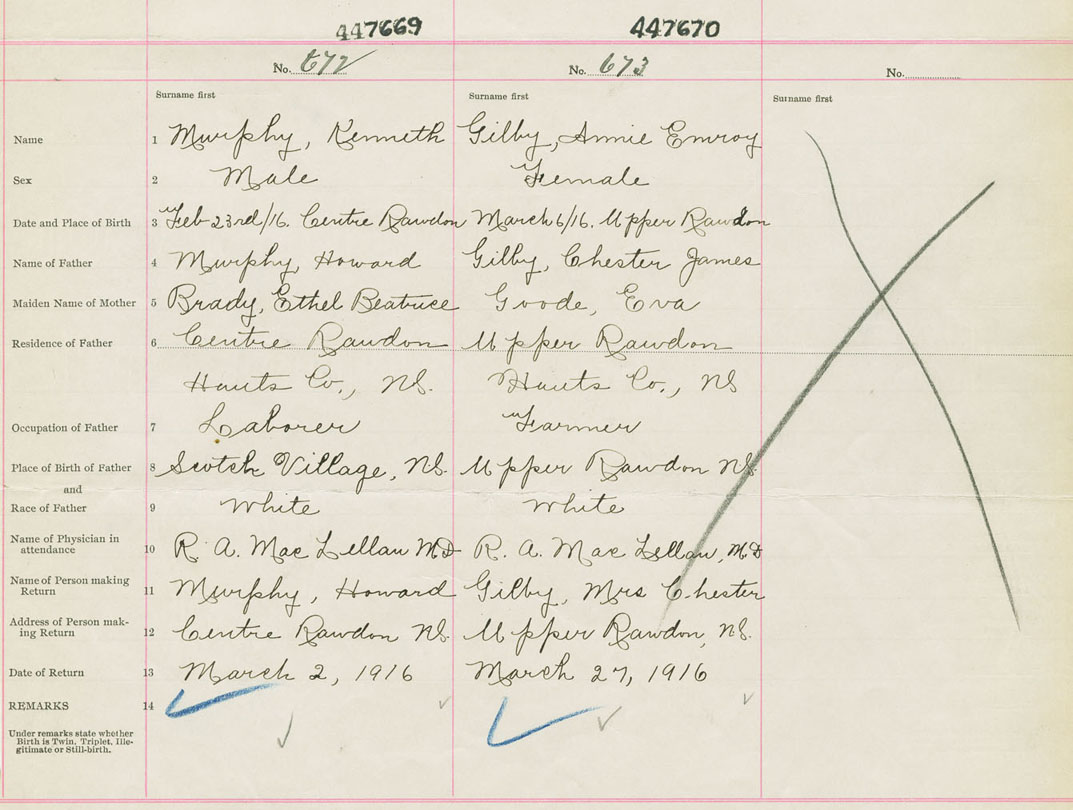 447669 447670
No. 672 No. 673 No.
Surname first Surname first Surname first
Name 1 Murphy, Kenneth Gilby, Annie Emroy
Sex 2 Male Female
Date and Place of Birth 3 Feb 23rd/16. Centre Rawdon March 6/16. Upper Rawdon
Name of Father 4 Murphy, Howard Gilby, Chester James
Maiden Name of Mother 5 Brady, Ethel Beatrice Goode, Eva
Residence of Father 6 Centre Rawdon Upper Rawdon
Hants Co., NS. Hants Co., NS
Occupation of Father 7 Laborer Farmer
Place of Birth of Father 8 Scotch Village, NS. Upper Rawdon NS.
and
Race of Father 9 White White
Name of Physician in
attendance 10 R. A. MacLellan MD R. A. MacLellan, M.D
Name of Person making
Return 11 Murphy, Howard Gilby, Mrs Chester
Address of Person mak-
ing Return 12 Centre Rawdon NS. Upper Rawdon, NS.
Date of Return 13 March 2, 1916 March 27, 1916
REMARKS 14
Under remarks state whether
Birth is Twin, Triplet, Ille-
gitimate or Still-birth.